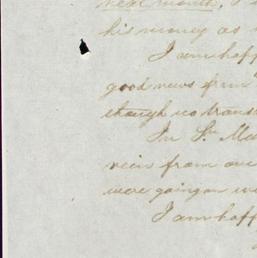 next month, I
his money as
I am happ
good news from
though no trans
In St. Ma
from our
were going on we
I am happ